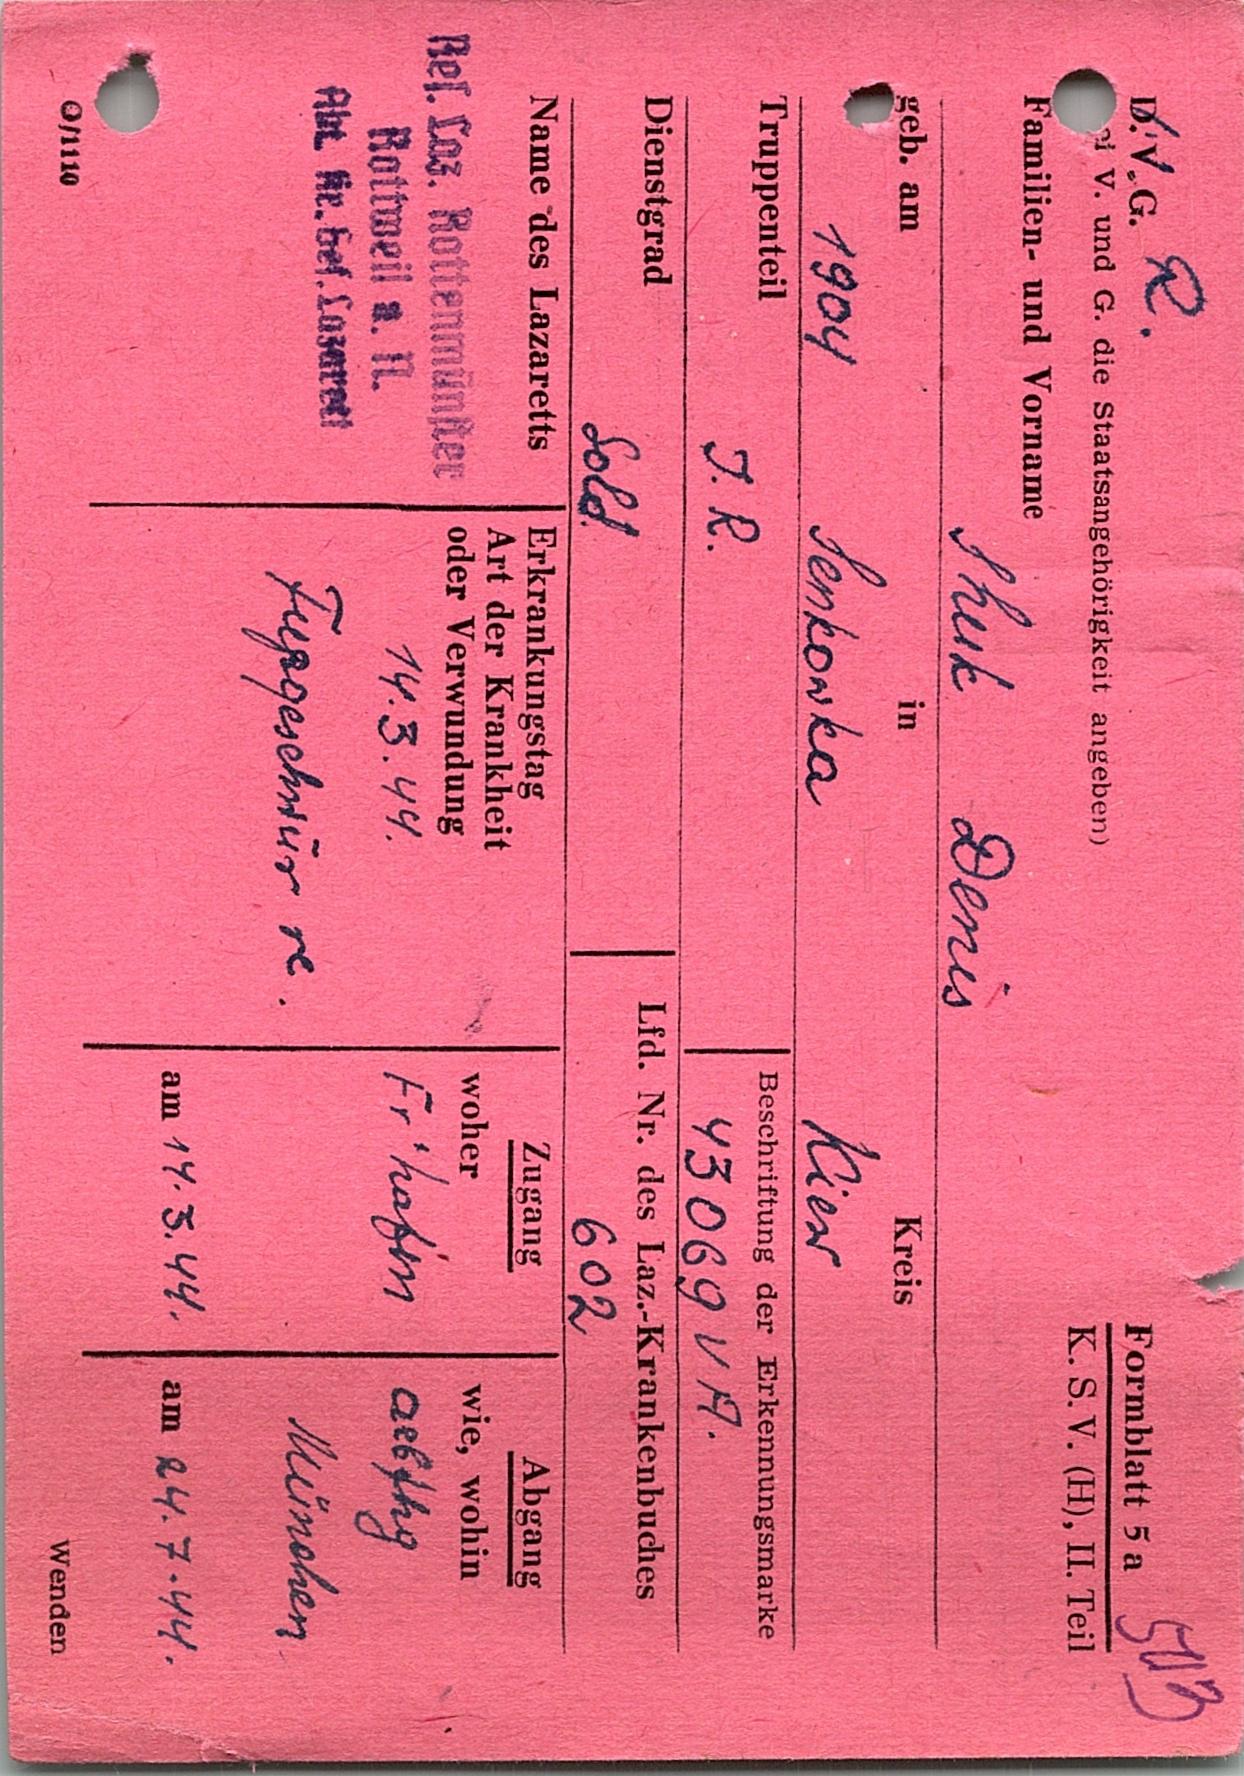 R.
D. V. G.
Formblatt 5 a
K. S. V. (H), II. Teil
V. und G. die Staatsangehörigkeit angeben)
Familien- und Vorname
Shuk Denis
geb. am in Kreis
1904 Senkowka Kiew
Truppenteil Beschriftung der Erkennungsmarke
I. R. 43069 V A.
Dienstgrad Lfd. Nr. des Laz.-Krankenbuches
Sold. 602
Name des Lazaretts
Res. Laz. Rottenmünster
Rottweil a. N.
Abt. Kr. Gef. Lazarett
Erkrankungstag
Art der Krankheit
oder Verwundung
14.3.44.
Fußgeschwür re.
Zugang
woher
am 14.3.44.
Abgang
wie, wohin
München
am 24.7.44.
O/1110
Wenden